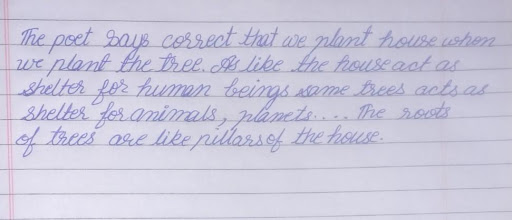 The poet says correct that we plant house when
we plant the tree. As like the house act as
shelter for human beings same trees acts as
shelter for animals, planets.... The roots
of trees are like pillars of the house.